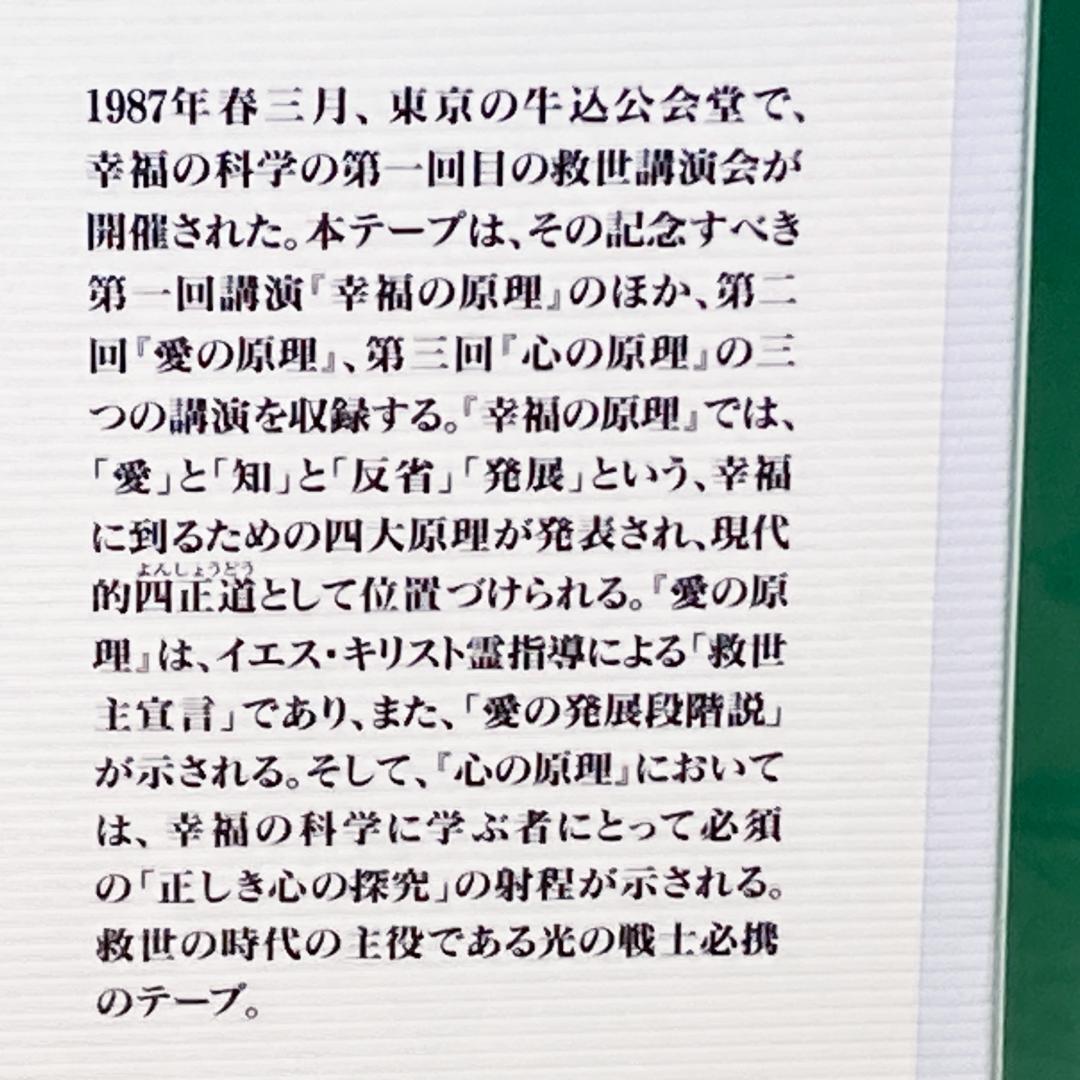 1987年春三月、東京の牛込公会堂で、
幸福の科学の第一回目の救世講演会が
開催された。本テープは、その記念すべき
第一回講演『幸福の原理』のほか、第二
回『愛の原理』、第三回『心の原理』の三
つの講演を収録する。『幸福の原理』では、
「愛」と「知」と「反省」「発展」という、幸福
に到るための四大原理が発表され、現代
よんしょうどう
的四正道として位置づけられる。『愛の原
理』は、イエス・キリスト霊指導による「救世
主宣言」であり、また、「愛の発展段階説」
が示される。そして、『心の原理』において
は、幸福の科学に学ぶ者にとって必須
の「正しき心の探究」の射程が示される。
救世の時代の主役である光の戦士必携
のテープ。